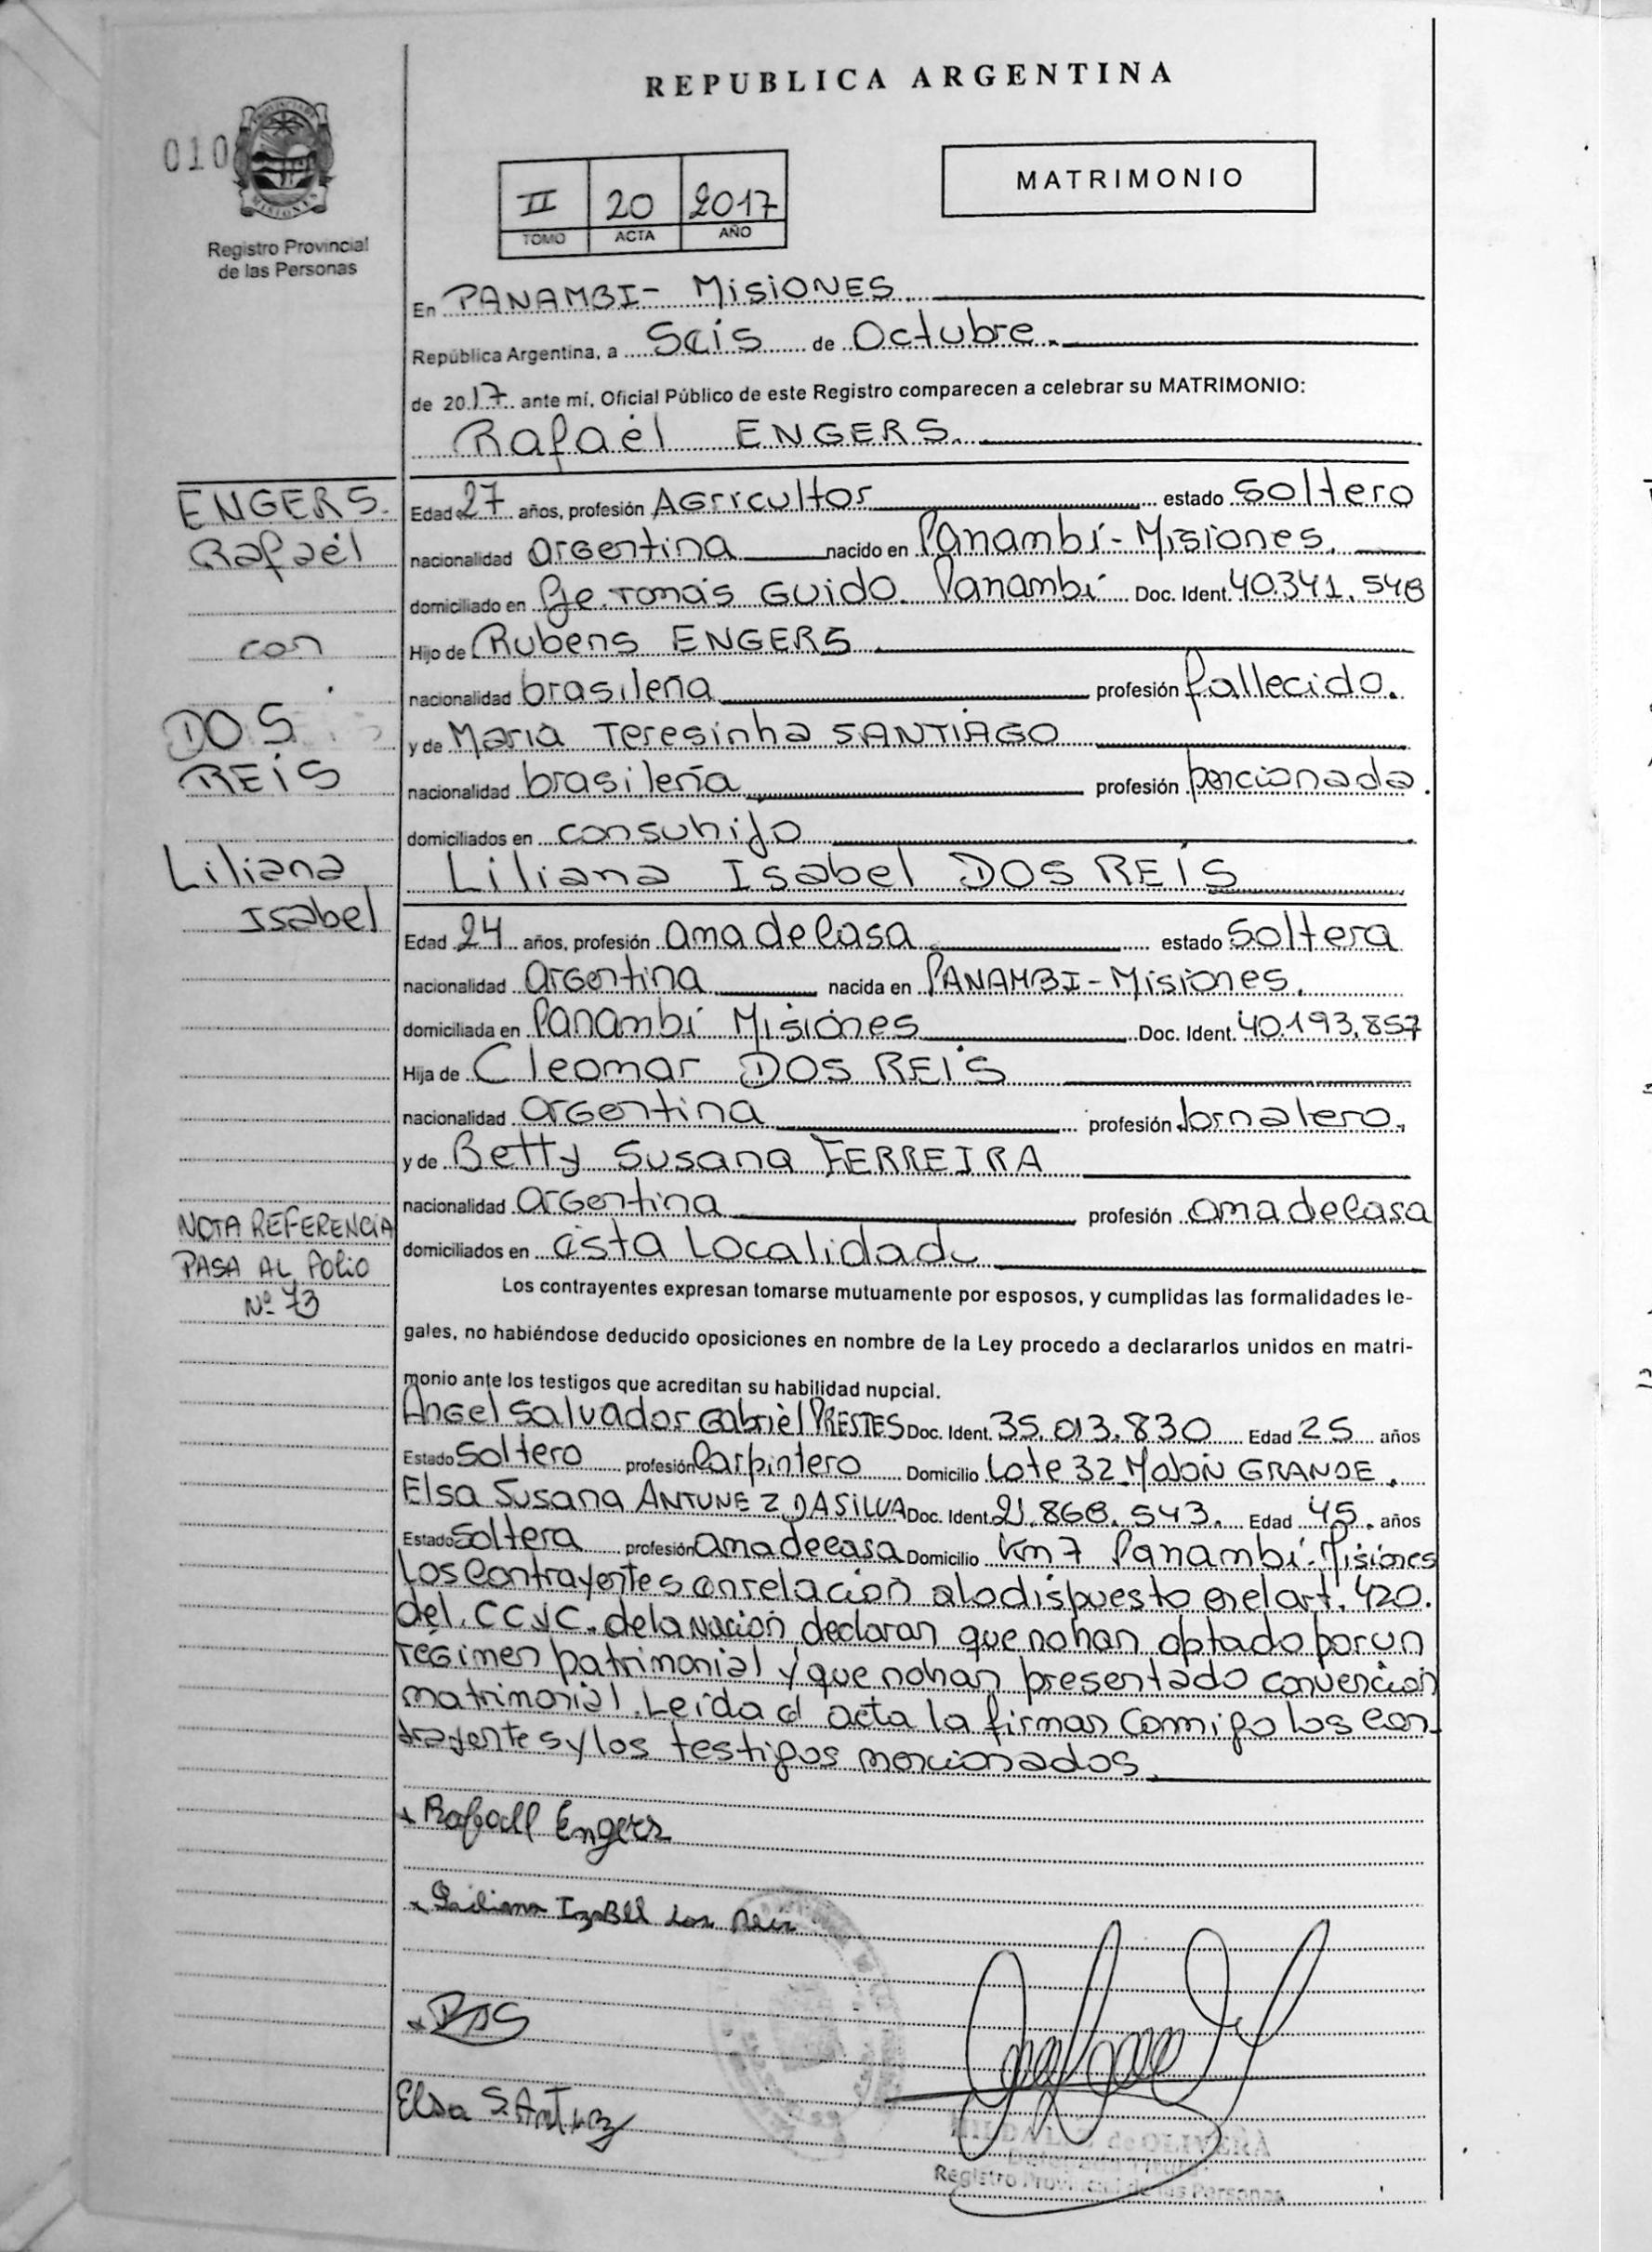 REPUBLICA ARGENTINA
010
Registro Provincial
de las Personas
II 20 2017
TOMO ACTA AÑO
MATRIMONIO
En PANAMBI- MisiONES.
República Argentina, a Seis de Octubre.
de 2017 ante mí, Oficial Público de este Registro comparecen a celebrar su MATRIMONIO:
Rafaél ENGERS.
ENGERS.
Rafaél
con
DOS
REiS
Liliana
Isabel
Edad 27 años, profesión AGricultor estado Soltero
nacionalidad argentina nacido en Panambí-Misiones.
domiciliado en Pje. Tomás GUido. Panambí Doc. Ident. 40.341.548
Hijo de Rubens ENGERS
nacionalidad brasileña profesión fallecido.
y de Maria Teresinha SANTIAGO
nacionalidad brasileña profesión pencionada.
domiciliados en consuhijo
Liliana Isabel DOS REÍS
Edad 24 años, profesión ama de Casa estado Soltera
nacionalidad argentina nacida en PANAMBI-Misiones.
domiciliada en Panambí Misiones Doc. Ident. 40.193.857
Hija de Cleomar DOS REÍS
nacionalidad argentina profesión Jornalero.
y de Betty Susana FERREIRA
nacionalidad argentina profesión ama de Casa
domiciliados en ésta Localidad
NOTA REFERENCIA
PASA AL Folio
Nº 73
Los contrayentes expresan tomarse mutuamente por esposos, y cumplidas las formalidades le-
gales, no habiéndose deducido oposiciones en nombre de la Ley procedo a declararlos unidos en matri-
monio ante los testigos que acreditan su habilidad nupcial.
Angel Salvador Gabriel PRESTES Doc. Ident. 35.013.830 Edad 25 años
Estado Soltero profesión Carpintero Domicilio Lote 32 Mojón GRANDE.
Elsa Susana ANTUNEZ DA SILVA Doc. Ident. 21.868.543. Edad 45. años
Estado Soltera profesión ama de casa Domicilio Km 7 Panambí-Misiones
Los Contrayentes en relación a lo dispuesto en el art. 420.
del. CCyC. de la Nación, declaran que no han optado por un
régimen patrimonial y que no han presentado convención
matrimonial. Leída el acta la firman Conmigo los Con-
trayentes y los testigos mencionados.
x Rafaell Engers
x Liliana IzaBel dos Reis
Elsa S. Antunez
de OLIVERA
Registro Provincial de las Personas